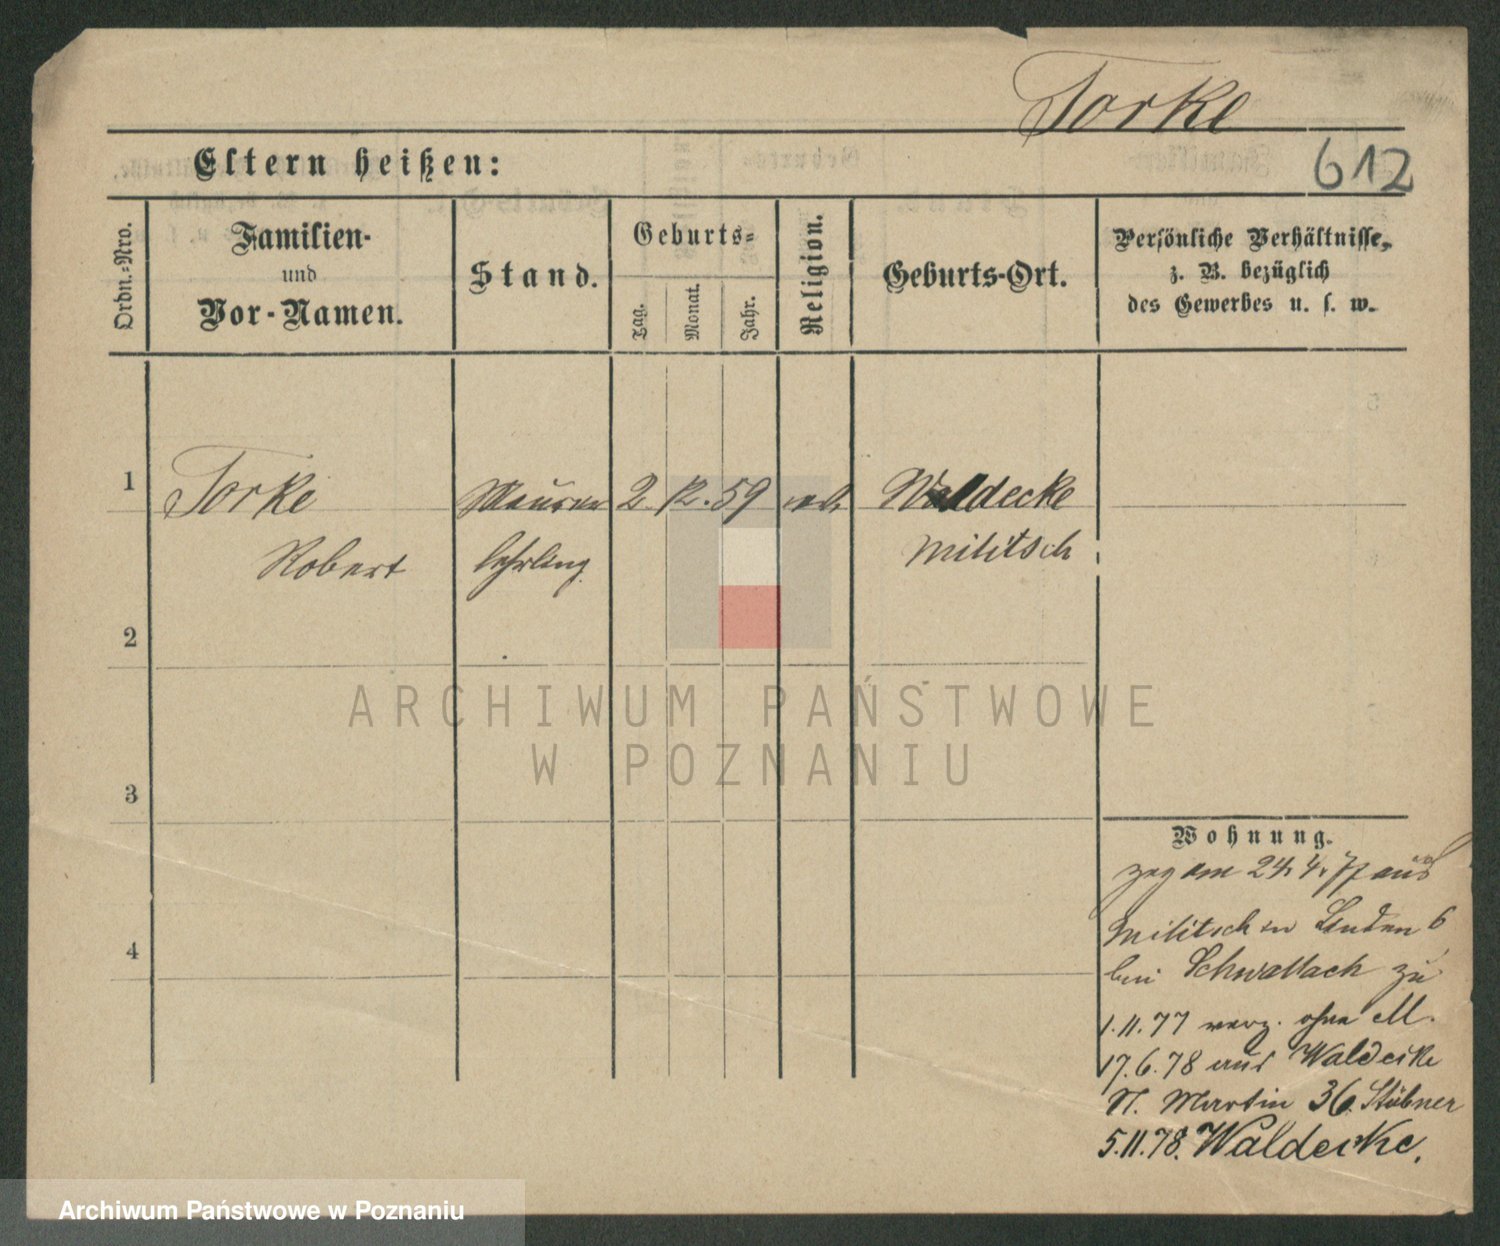 Torke
612
Eltern heißen:
Ordn.-Nro.
Familien-
und
Vor-Namen.
Stand.
Geburts-
Tag.
Monat.
Jahr.
Religion.
Geburts-Ort.
Persönliche Verhältnisse,
z. B. bezüglich
des Gewerbes u. s. w.
1
Torke
Maurer
2. 12. 59
Waldecke
Robert
lehrling
Militsch
2
3
4
Wohnung.
zog am 24. 4. 77 aus
Militsch in Linden 6
bei Schwallach zu
1.11.77 verz. ohne M.
17.6.78 aus Waldecke
St. Martin 36. Stübner
5.11.78. Waldecke.
ARCHIWUM PAŃSTWOWE
W POZNANIU
Archiwum Państwowe w Poznaniu